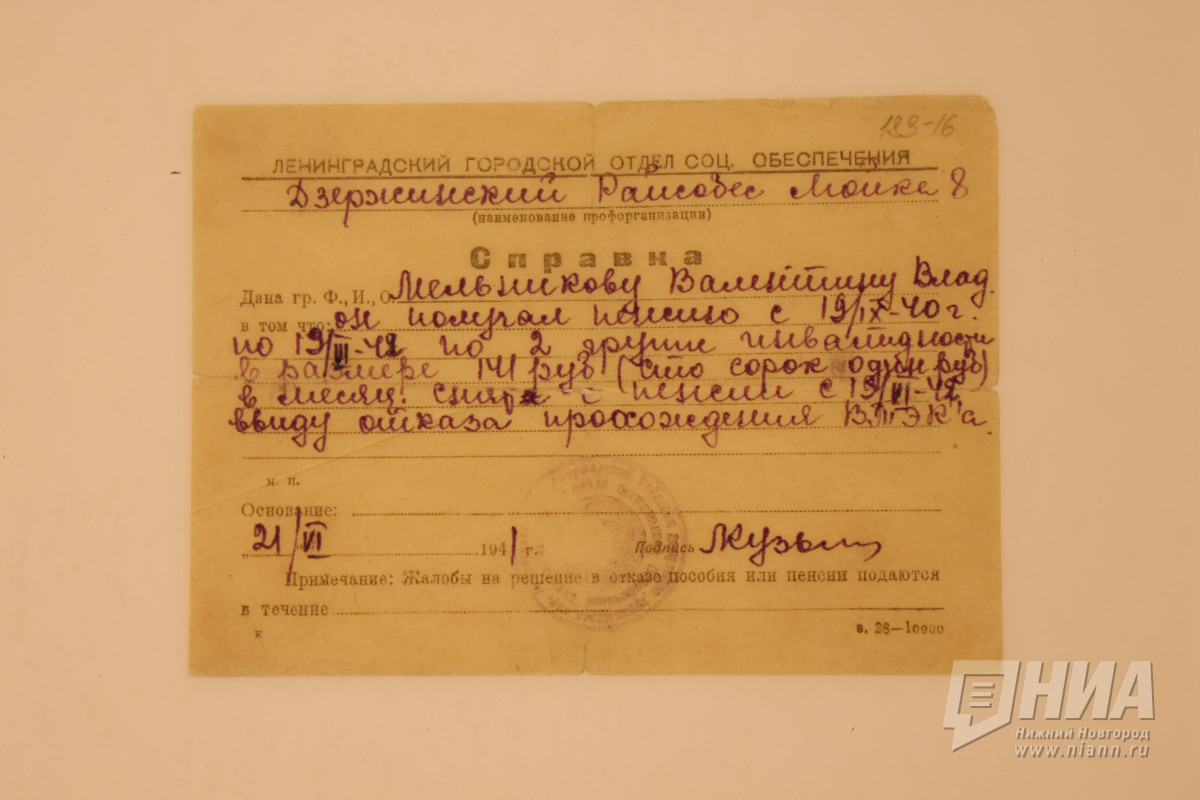 183-16
ЛЕНИНГРАДСКИЙ ГОРОДСКОЙ ОТДЕЛ СОЦ. ОБЕСПЕЧЕНИЯ
Дзержинский Райсобес Мойка 8
(наименование профорганизации)
Справка
Дана гр. Ф., И., О. Мельникову Валентину Влад.
в том что: он получал пенсию с 19/IX-40 г.
по 19/III-41 по 2 группе инвалидности
в размере 141 руб (сто сорок один руб)
в месяц. снят с пенсии с 19/III-41
ввиду отказа прохождения ВТЭК'а.
м. п.
Основание:
21/VI 1941 г. Подпись
Примечание: Жалобы на решение в отказе пособия или пенсии подаются
в течение
к з. 28—10000
НИА
Нижний Новгород
www.niann.ru